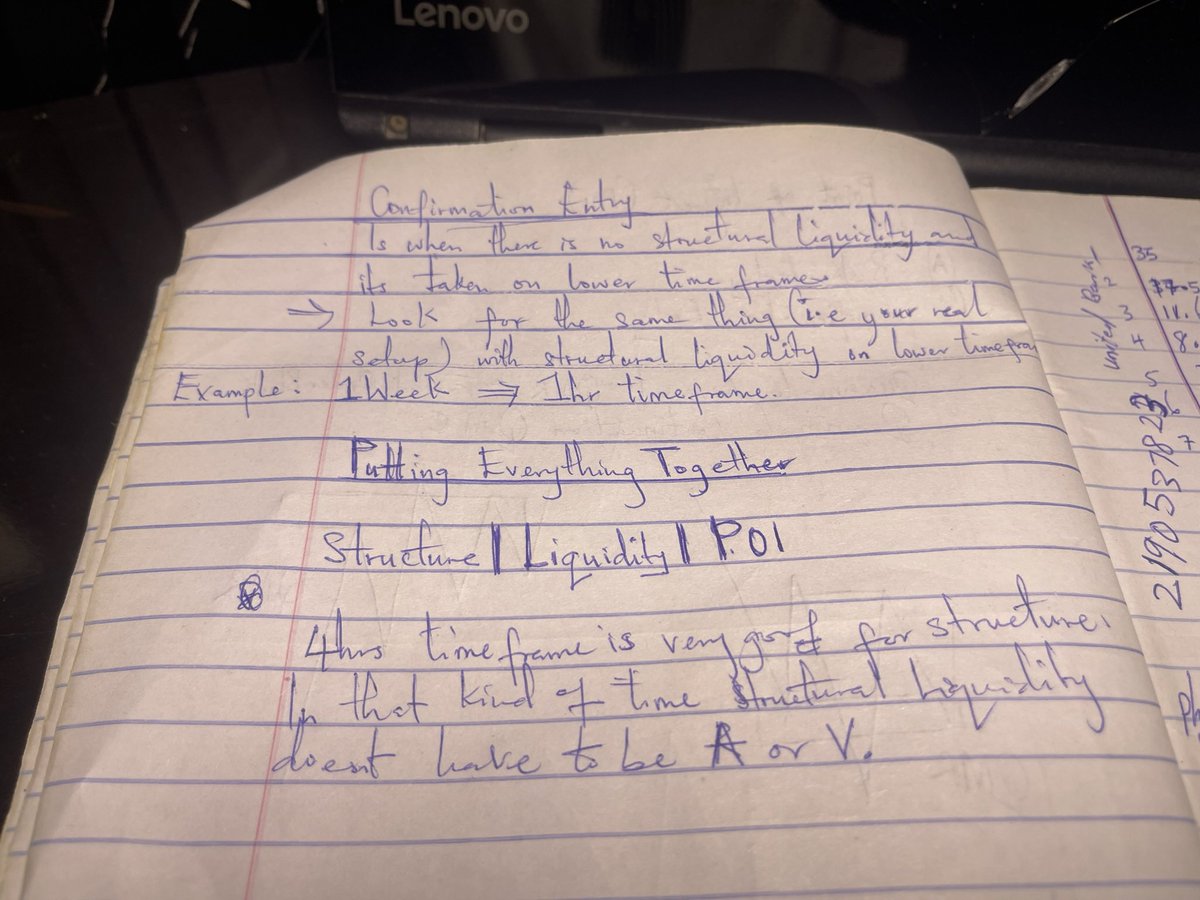 Lenovo
Confirmation Entry
Is when there is no structural liquidity and
its taken on lower time frames
⇒ Look for the same thing (i.e your real
setup) with structural liquidity on lower timefra
Example: 1 Week ⇒ 1hr timeframe.
Putting Everything Together
Structure | Liquidity | P.OI
4hrs timeframe is very good for structure.
In that kind of time structural liquidity
doesnt have to be A or V.
35
3
4
5
7
United Bank
2190537823